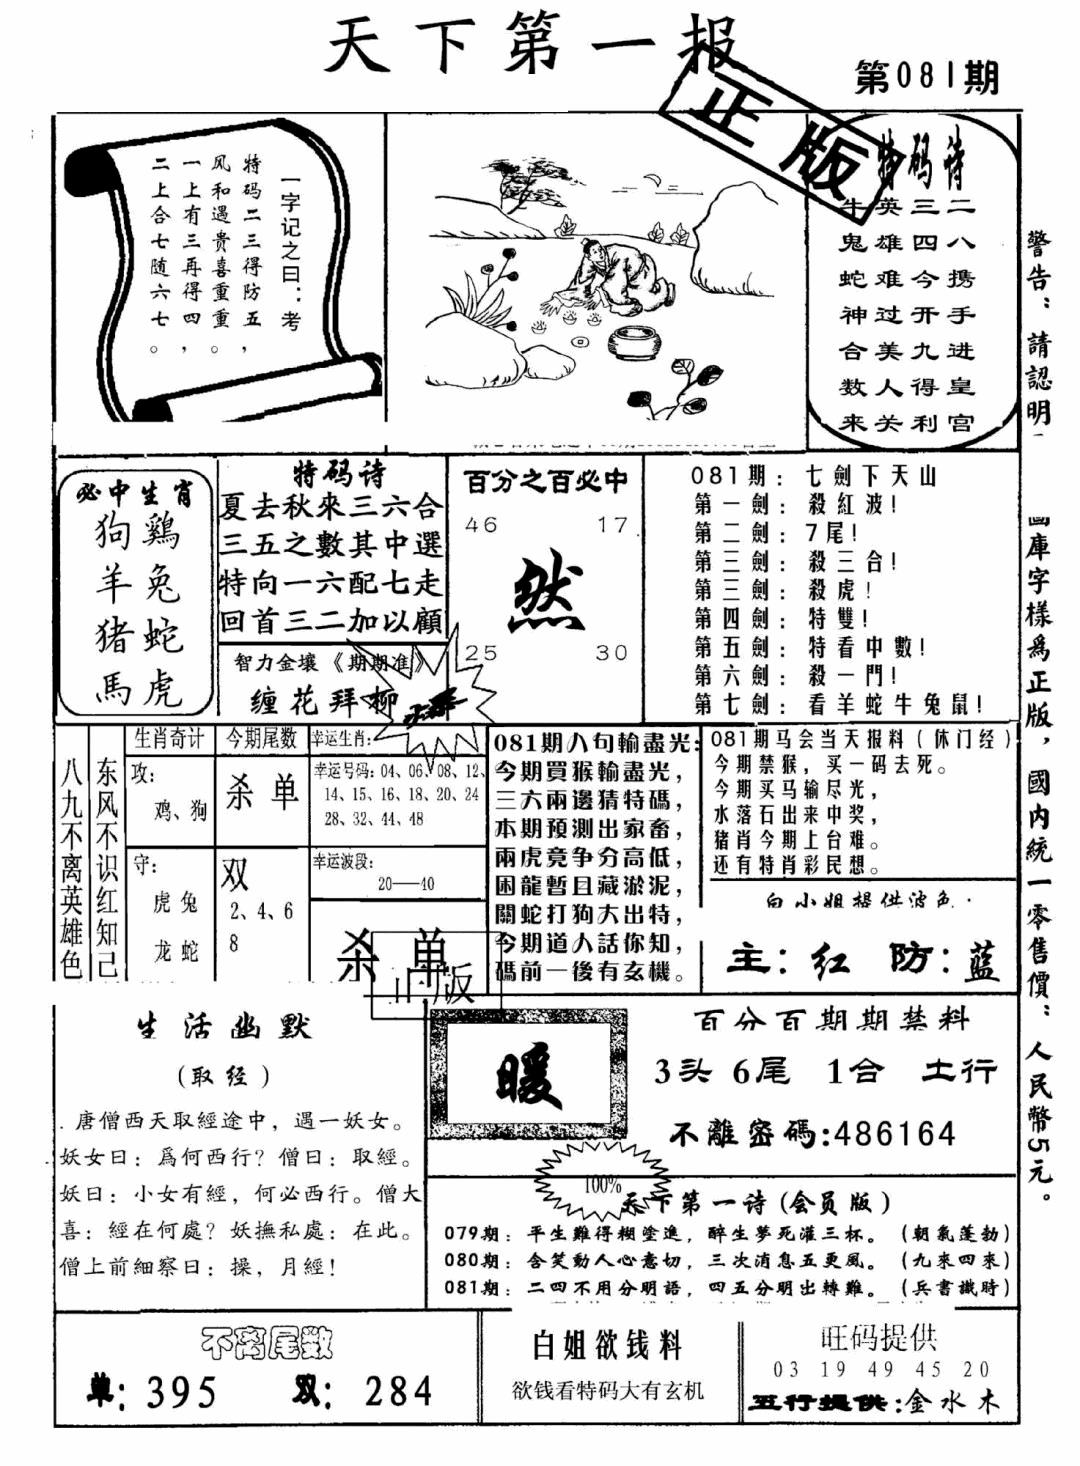 天下第一报
第081期
正版
一字记之曰：考
特码二三得防五，
风和遇贵喜重重。
一上有三再得四，
二上合七随六七。
特码诗
二八携手进皇宫
三四今开九得利
英雄难过美人关
牛鬼蛇神合数来
警告：請認明
國庫字樣為正版，國内統一零售價：人民幣5元。
必中生肖
狗鷄
羊兔
猪蛇
馬虎
特码诗
夏去秋來三六合
三五之數其中選
特向一六配七走
回首三二加以顧
智力金壤《期期准》
缠花拜柳
百分之百必中
46 17
然
25 30
081期：七劍下天山
第一劍：殺紅波！
第二劍：7尾！
第三劍：殺三合！
第三劍：殺虎！
第四劍：特雙！
第五劍：特看中數！
第六劍：殺一門！
第七劍：看羊蛇牛兔鼠！
八九不离英雄色
东风不识红知己
生肖奇计
攻：
鸡、狗
守：
虎兔
龙蛇
今期尾数
杀单
双
2、4、6
8
幸运生肖：
幸运号码：04、06、08、12、
14、15、16、18、20、24
28、32、44、48
幸运波段：
20——40
杀单
正版
081期八句輸盡光：
今期買猴輸盡光，
三六兩邊猜特碼，
本期預測出家畜，
兩虎竟争分高低，
困龍暫且藏淤泥，
關蛇打狗大出特，
今期道人話你知，
碼前一後有玄機。
081期马会当天报料（休门经）
今期禁猴，买一码去死。
今期买马输尽光，
水落石出来中奖，
猪肖今期上台难。
还有特肖彩民想。
白小姐提供波色：
主：红 防：蓝
生活幽默
（取经）
唐僧西天取經途中，遇一妖女。
妖女曰：爲何西行？僧曰：取經。
妖曰：小女有經，何必西行。僧大
喜：經在何處？妖撫私處：在此。
僧上前細察曰：操，月經！
暖
百分百期期禁料
3头 6尾 1合 土行
不離密碼:486164
100%
天下第一诗（会员版）
079期：平生難得糊塗進，醉生夢死灌三杯。（朝氣蓬勃）
080期：含笑動人心意切，三次消息五更風。（九來四來）
081期：二四不用分明語，四五分明出轉難。（兵書識時）
不离尾数
单：395 双：284
白姐欲钱料
欲钱看特码大有玄机
旺码提供
03 19 49 45 20
五行提供：金水木